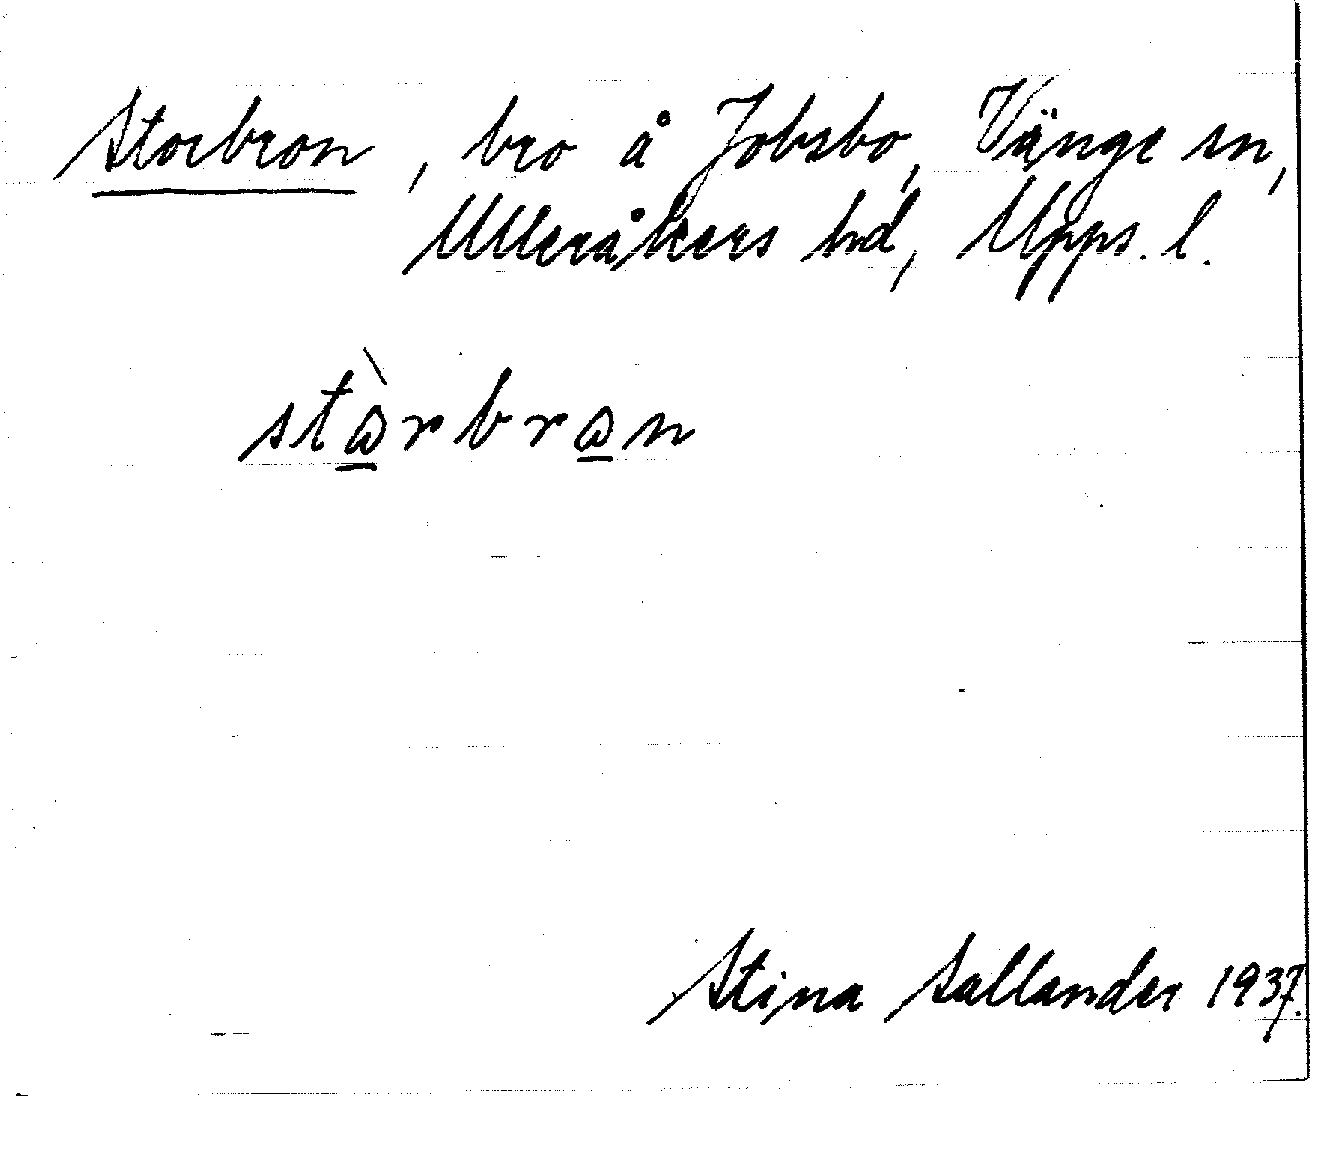 Storbron, bro å Jobsbo, Vänge sn,
Ulleråkers hd, Upps. l.
stὼ̲rbrω̲n
Stina Sallander 1937.